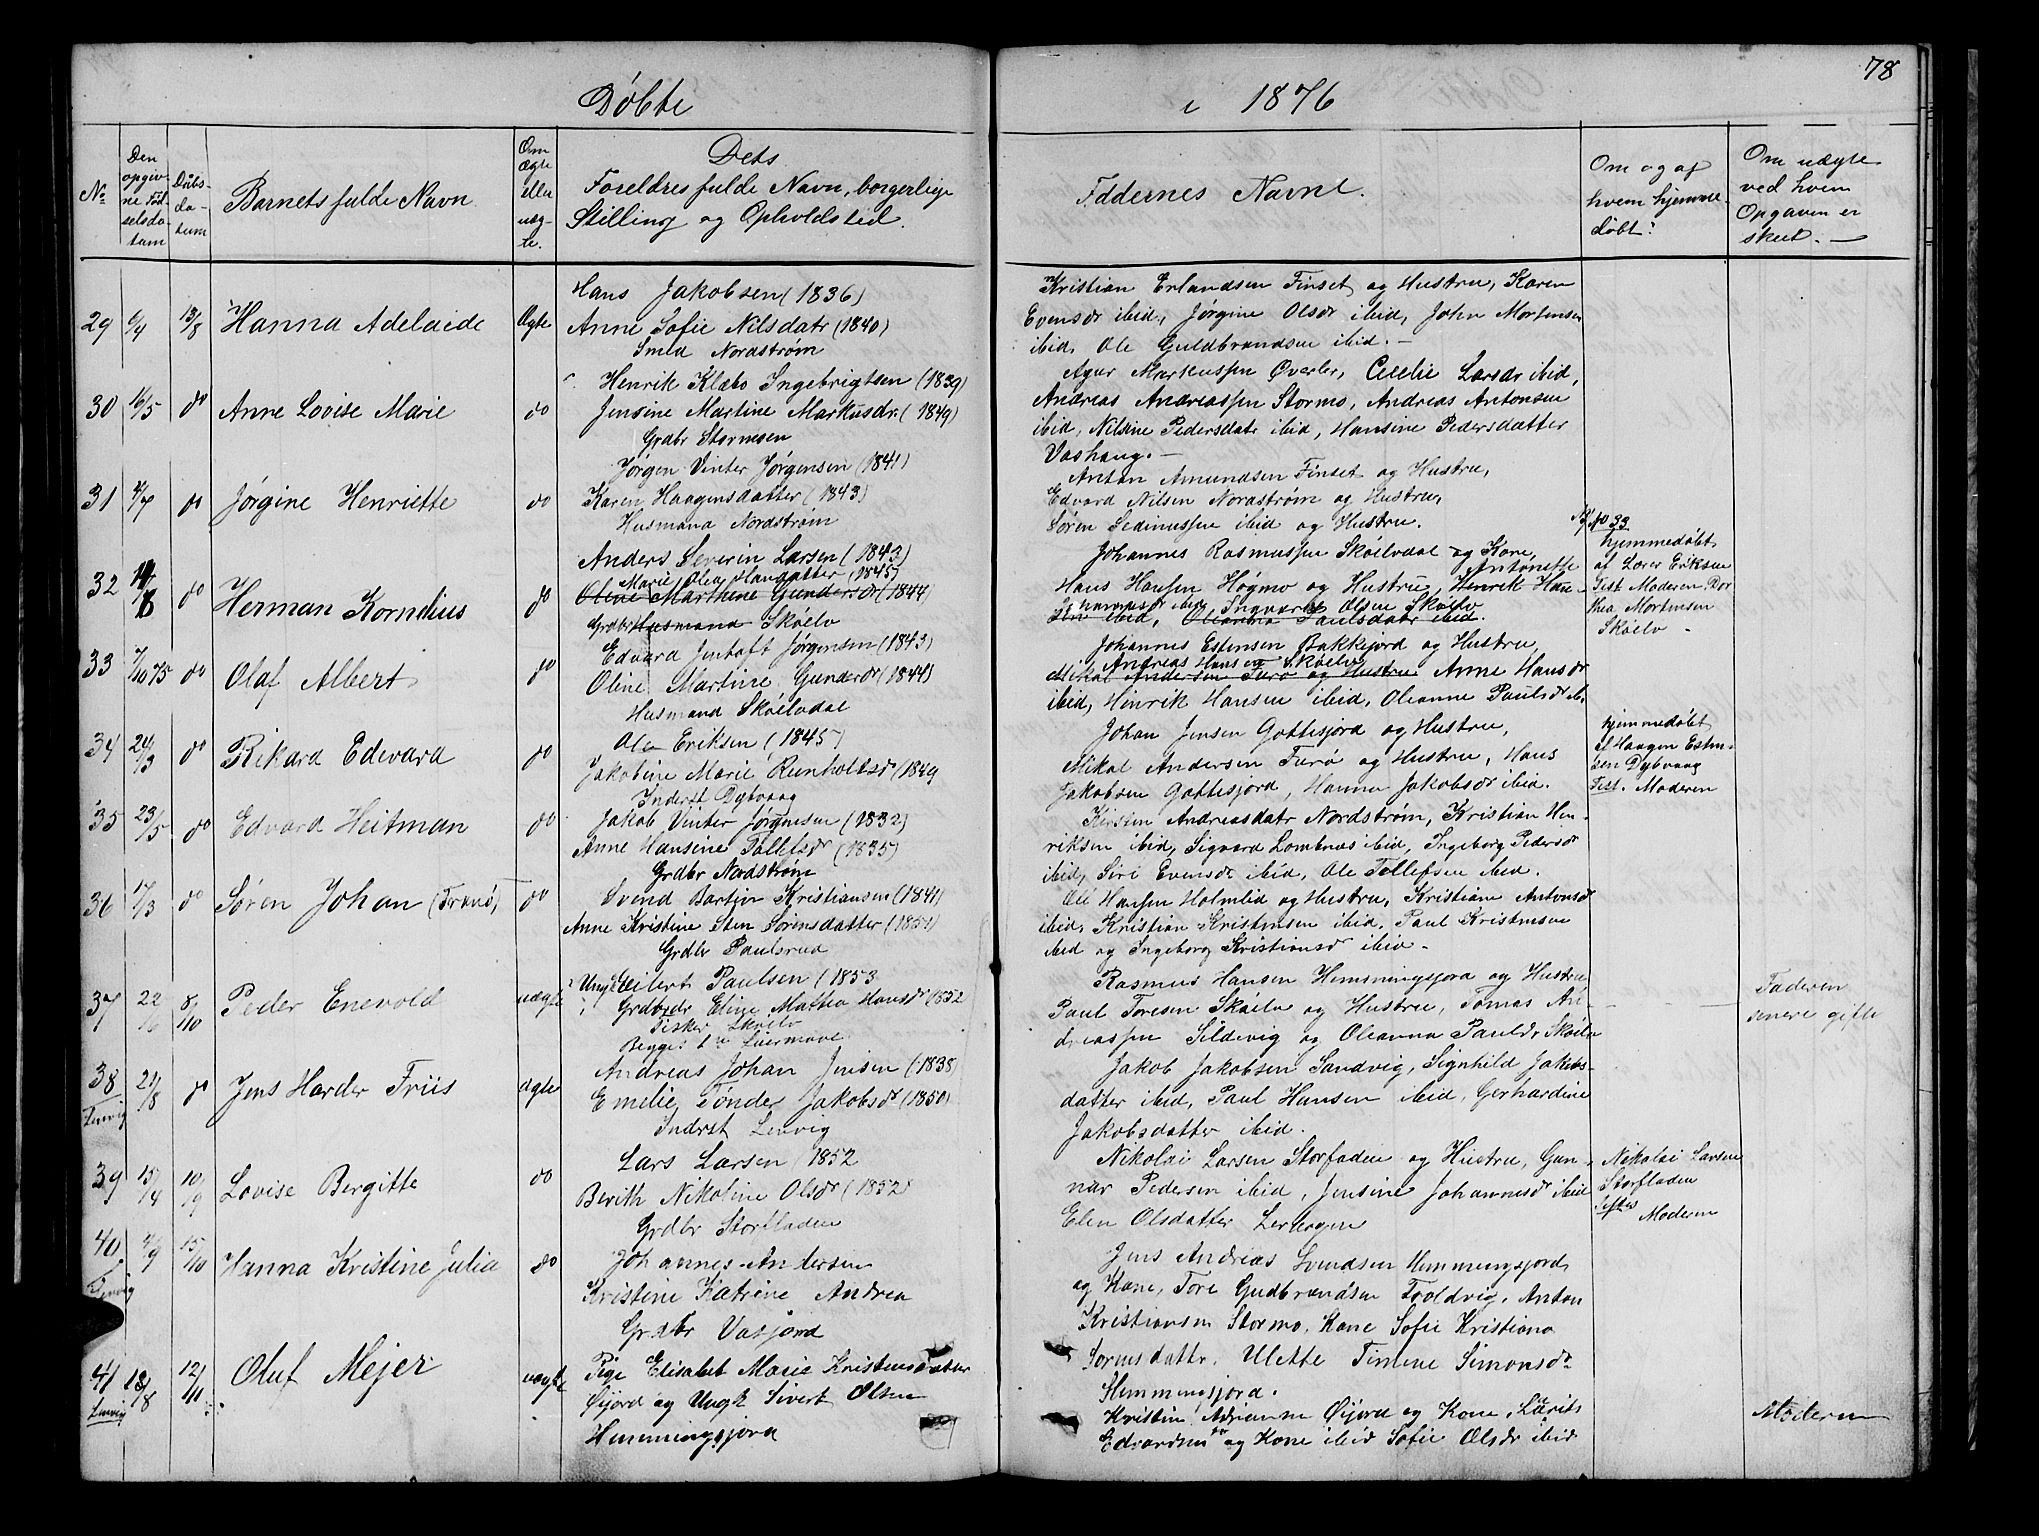 78
Döbte i 1876
No
Den opgivne Fødselsdatum
Daabsdatum
Barnets fulde Navn
Om ægte eller uægte.
Dets Foreldres fulde Navn, borgerlige Stilling og Opholdsted.
Faddernes Navne.
Om og af hvem hjemmedøbt?
Om uægte ved hvem Opgaven er skeet. —
29 6/4 13/8 Hanna Adelaide Ægte
Hans Jakobsen (1836)
Anne Sofie Nilsdatr (1840)
Smed Nordstrøm
Kristian Erlandsen Finset og Hustru, Karen
Evensdr ibid, Jørgine Olsdr ibid, John Mortensen
ibid, Ole Guldbrandsen ibid. —
30 16/5 do Anne Lovise Marie do
Henrik Klæbo Ingebrigtsen (1839)
Jensine Martine Markusdr. (1849)
Grdbr Stormoen
Markussen Øverler, Cecelie Larsdr ibid,
Andreas Andreassen Stormo, Andreas Antonsen
ibid, Nilsine Pedersdatr ibid, Hansine Pedersdatter
Vashaug. —
31 do Jørgine Henriette do
Jørgen Vinter Jørgensen (1841)
Karen Haagensdatter (1843)
Husmand Nordstrøm
Anton Amundsen Finset og Hustru,
Edvard Nilsen Nordstrøm og Hustru,
Søren Sedinussen ibid og Hustru.
32 do Herman Kornelius do
Anders Severin Larsen (1843)
Marie Olea Hansdatter (1845)
Oline Marthine Gundersdr (1844)
Grdbr Husmand Skøelv
Johannes Rasmussen Skøelvdal og Kone,
Antonette
Hans Hansen Høgmo og Hustru, Henrik Han-
Johannesdr ibid, Ingvart Olsen Skøelv
sen ibid, Oleanna Paulsdatr ibid.
No 33
hjemmedøbt
af Lorer Eriksen
Test. Moderen Dor
thea Mortensen
Skøelv
33 7/10 75 do Olaf Albert do
Edvard Jentoft Jørgensen (1843)
Oline Martine Gundersdr (1844)
Husmand Skøelvdal
Johannes Estensen Bakkejord og Hustru,
Andreas Hansen Skøelv
Mikal Andersen Furø og Hustru Anne Hansdr
ibid, Hinrik Hansen ibid, Oleanne Paulsdr ib.
34 24/3 do Rikard Edevard do
Ole Eriksen (1845)
Jakobine Marie Reinholtsdr (1849
Inderst Dybvaag
Johan Jensen Gottesjord og Hustru,
Mikal Andersen Furø og Hustru, Hans
Jakobsen Gottesjord, Hanna Jakobsdr ibid.
hjemmedøbt
af Haagen Esten-
sen Dybvaag
Test. Moderen
35 23/5 do Edvard Heitman do
Jakob Vinter Jørgensen (1832)
Anne Hansine Tollefsdr (1835)
Grdbr Nordstrøm
Kirsten Andreasdatr Nordstrøm, Kristian Hen-
riksen ibid, Sigvard Lombnæs ibid, Ingeborg Pedersdr
ibid, Siri Evensdr ibid, Ole Tollefsen ibid.
36 17/3 do Søren Johan (Tranø) do
Svend Bartin Kristiansen (1841)
Anne Kristine Sten Sørensdatter (1851)
Grdbr Paulsrud
Ole Hansen Holmlid og Hustru, Kristiane Antonsdr
ibid, Kristian Kristensen ibid, Paul Kristensen
ibid og Ingeborg Kristiansdr ibid —
37 22/6 8/10 Peder Enevold uægte
Ungk. Eilert Paulsen (1853
Grdbrdr Eline Mathea Hansdr 1852
Fisker Skøelv
Begges 1ste Leiermaal
Rasmus Hansen Hemmingsjord og Hustru
Paul Toresen Skøelv og Hustru, Tomas An-
dreassen Sildevig og Oleanna Paulsdr Skøelv
Faderen
senere gifte
38 Lenvig 21/8 do Jens Harder Friis ægte
Andreas Johan Jensen (1838)
Emelie Tønder Jakobsdr (1850)
Inderst Lenvig
Jakob Jakobsen Sandvig, Signhild Jakobs-
datter ibid, Paul Hansen ibid, Gerhardine
Jakobsdatter ibid.
39 15/4 10/9 Lovise Bergitte do
Lars Larsen (1852
Berith Nikoline Olsdr (1852)
Grdbr Storfladen
Nikolai Larsen Storfladen og Hustru, Gun-
nar Pedersen ibid, Jensine Johannesdr ibid
Elen Olsdatter Lerhogen
Nikolai Larsen
Storfladen
Testes Moderen
40 Lenvig 4/9 15/10 Hanna Kristine Julia do
Johannes Andersen
Kristine Katrine Andrea
Grdbr Vasjord
Jens Andreas Svendsen Hemmingsjord
og Kone, Tore Gudbrandsen Foldvig, Anton
Kristiansen Stormo, Kone Sofie Kristiana
Sørensdattr, Ulette Timine Simonsdr
Hemmingsjord.
41 Lenvig 18/8 12/11 Oluf Mejer uægte
Pige Elisabet Marie Kristensdatter
Øijord og Ungk Sivert Olsen
Hemmingsjord
Kristin Adrianne Øijord og Kone, Laurits
Edvardsen og Kone ibid Sofie Olsdr ibid
Moderen